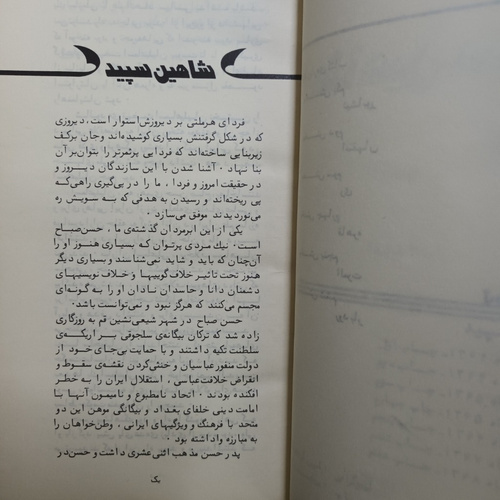 شاهین سپید
فردای هرملتی بر دیروزش استوار است، دیروزی
که در شکل گرفتنش بسیاری کوشیده‌اند وجان برکف
زیربنایی ساخته‌اند که فردایی پرثمرتر را بتوان‌بر آن
بنا نهاد . آشنا شدن با این سازندگان دیروز و
در حقیقت امروز و فردا ، ما را در پی‌گیری راهی‌که
پی ریخته‌اند و رسیدن به هدفی که به سویش ره
می‌نوردیدند موفق می‌سازد .
یکی از این ابرمردان گذشته‌ی ما ، حسن‌صباح
است . نیك مردی پرتوان که بسیاری هنوز او را
آن‌چنان که باید و شاید نمی‌شناسند و بسیاری دیگر
هنوز تحت تاثیر خلاف‌گوییها و خلاف نویسیهای
دشمنان دانا و حاسدان نادان او را به گونه‌ای
مجسم می‌کنند که هرگز نبود و نمی‌توانست باشد .
حسن صباح در شهر شیعی‌نشین قم به روزگاری
زاده شد که ترکان بیگانه‌ی سلجوقی بر اریکه‌ی
سلطنت تکیه داشتند و با حمایت بی‌جای خود از
دولت منفور عباسیان و خنثی‌کردن نقشه‌ی سقوط و
انقراض خلافت‌عباسی ، استقلال ایران را به خطر
افکنده بودند . اتحاد نامطبوع و نامیمون آنها با
امامت دینی خلفای بغداد و بیگانگی موهن این دو
متحد با فرهنگ و ویژگیهای ایرانی ، وطن‌خواهان را
به مبارزه واداشته بود .
پدر حسن مذهب اثنی عشری داشت و حسن‌در
یک